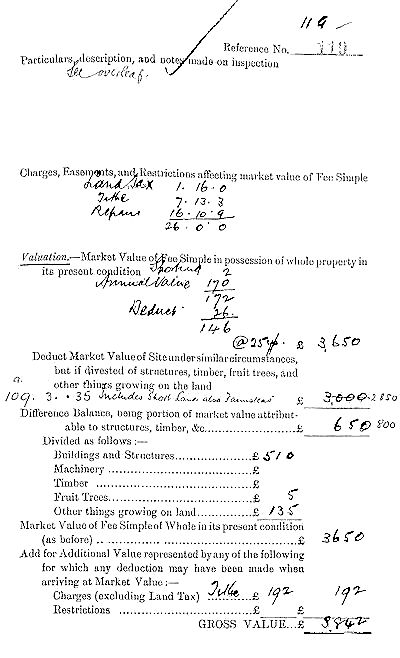 119
Reference No. 119
Particulars, description, and notes made on inspection
See overleaf.
Charges, Easements, and Restrictions affecting market value of Fee Simple
Land Tax 1. 16. 0
Tithe 7. 13. 3
Repairs 16. 10. 9
26. 0. 0
Valuation.—Market Value of Fee Simple in possession of whole property in
its present condition Sporting 2
Annual Value 170
172
Deduct 26.
146
@ 25 yp. £ 3,650
Deduct Market Value of Site under similar circumstances,
but if divested of structures, timber, fruit trees, and
other things growing on the land
a.
109. 3. 35 Includes Land also Farmstead £ 3,000 2850
Difference Balance, being portion of market value attribut-
able to structures, timber, &c. £ 650 800
Divided as follows :—
Buildings and Structures £ 510
Machinery £
Timber £
Fruit Trees £ 5
Other things growing on land £ 135
Market Value of Fee Simple of Whole in its present condition
(as before) £ 3650
Add for Additional Value represented by any of the following
for which any deduction may have been made when
arriving at Market Value :—
Charges (excluding Land Tax) Tithe £ 192 192
Restrictions £ £
GROSS VALUE...£ 3,842